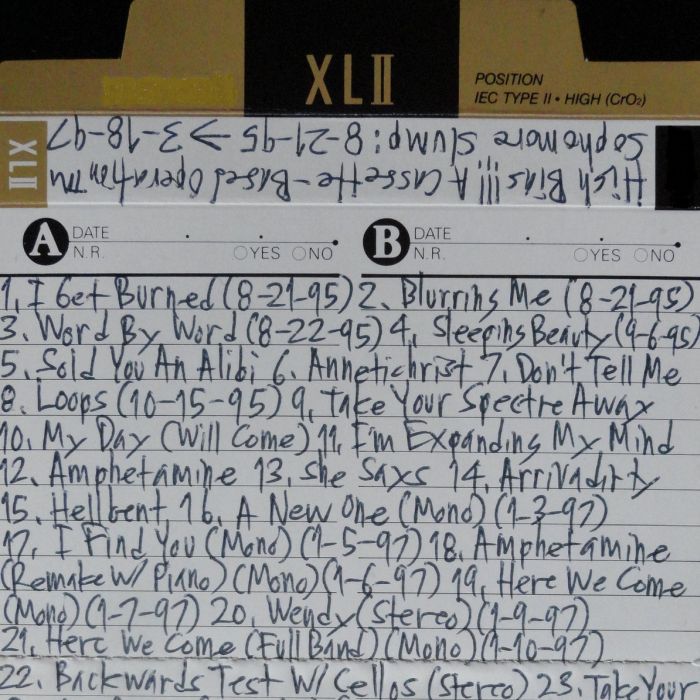 XLII
POSITION
IEC TYPE II • HIGH (CrO₂)
XLII
High Bias!!! A Cassette-Based Operation™
Sophomore Slump: 8-21-95 → 3-18-97
A DATE
N.R. YES NO
B DATE
N.R. YES NO
1. I Get Burned (8-21-95) 2. Blurring Me (8-21-95)
3. Word By Word (8-22-95) 4. Sleeping Beauty (9-6-95)
5. Sold You An Alibi 6. Annetichrist 7. Don't Tell Me
8. Loops (10-15-95) 9. Take Your Spectre Away
10. My Day (Will Come) 11. I'm Expanding My Mind
12. Amphetamine 13. She Says 14. Arrivadirty
15. Hellbent 16. A New One (Mono) (1-3-97)
17. I Find You (Mono) (1-5-97) 18. Amphetamine
(Remake W/ Piano) (Mono) (1-6-97) 19. Here We Come
(Mono) (1-7-97) 20. Wendy (Stereo) (1-9-97)
21. Here We Come (Full Band) (Mono) (1-10-97)
22. Backwards Test W/ Cellos (Stereo) 23. Take Your